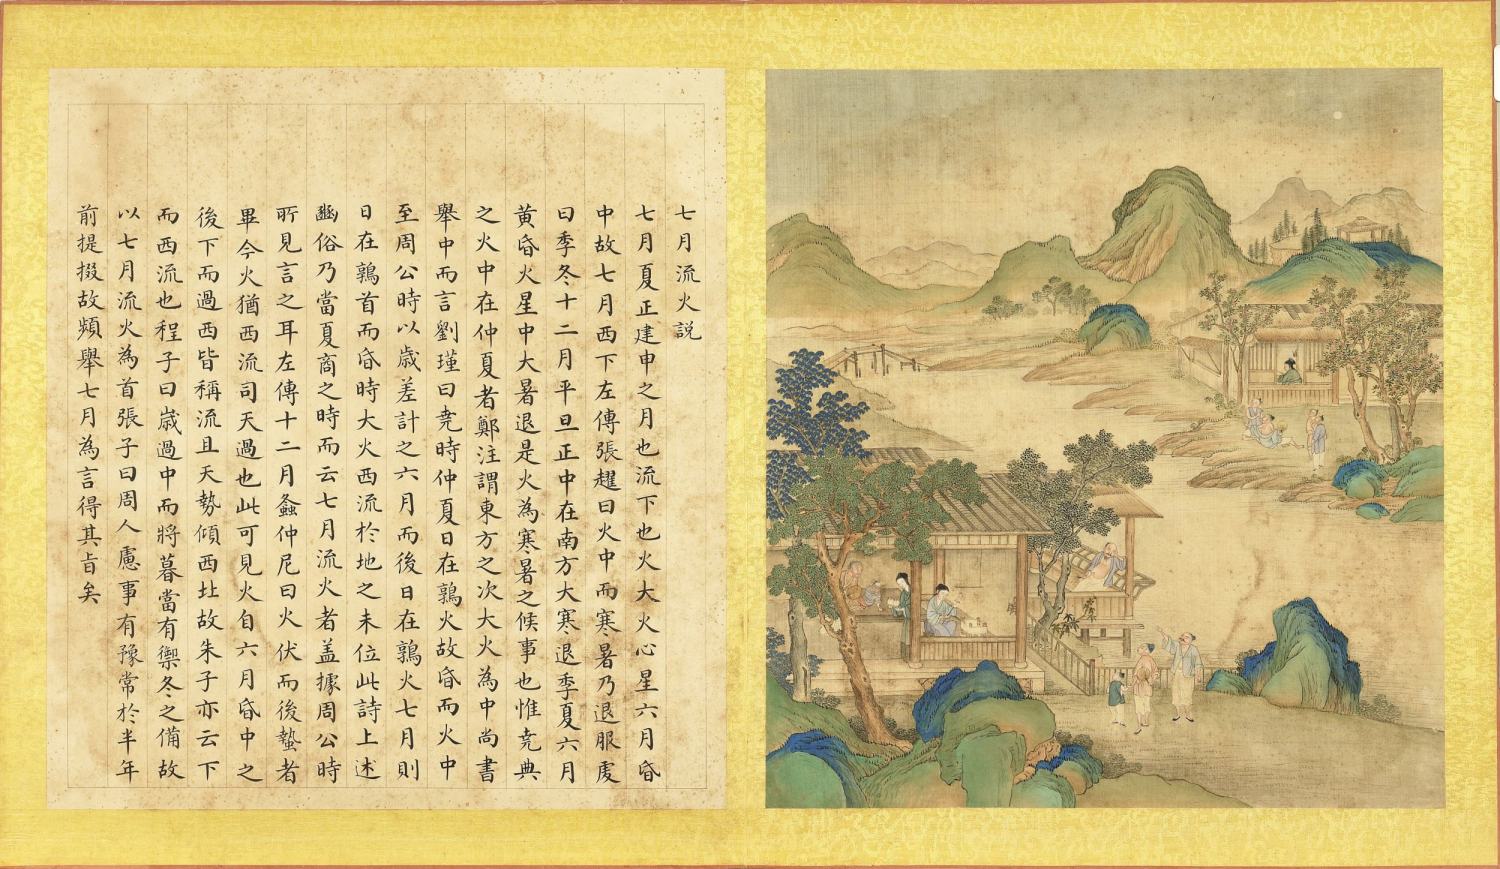 七月流火説
七月夏正建申之月也流下也火大火心星六月昏
中故七月西下左傳張趯曰火中而寒暑乃退服虔
曰季冬十二月平旦正中在南方大寒退季夏六月
黄昏火星中大暑退是火為寒暑之候事也惟堯典
之火中在仲夏者鄭注謂東方之次大火為中尚書
舉中而言劉瑾曰堯時仲夏日在鶉火故昏而火中
至周公時以歲差計之六月而後日在鶉火七月則
日在鶉首而昏時大火西流於地之未位此詩上述
豳俗乃當夏商之時而云七月流火者蓋據周公時
所見言之耳左傳十二月螽仲尼曰火伏而後蟄者
畢今火猶西流司天過也此可見火自六月昏中之
後下而過西皆稱流且天勢傾西北故朱子亦云下
而西流也程子曰歲過中而將暮當有禦冬之備故
以七月流火為首張子曰周人慮事有豫常於半年
前提掇故頻舉七月為言得其旨矣